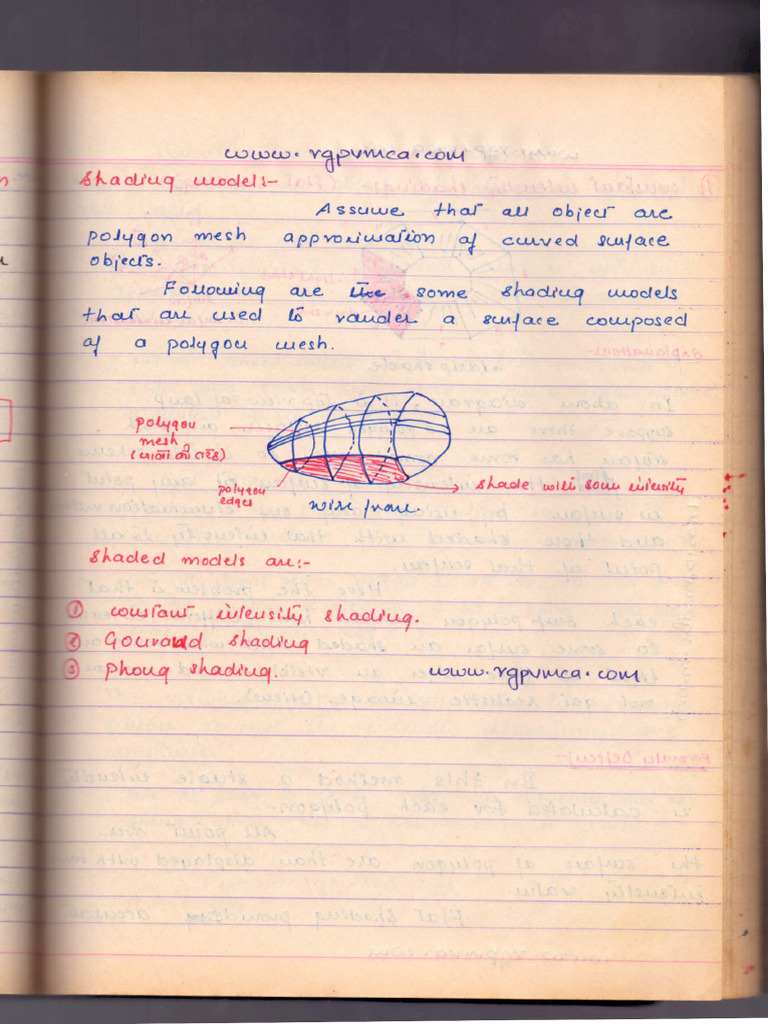 www.rgpvmca.com
Shading models:-
Assume that all object are
polygon mesh approximation of curved surface
objects.
Following are the some shading models
that are used to rander a surface composed
of a polygon mesh.
polygon
mesh
polygon
edges
shade with some intensity
wire frame.
Shaded models are:-
① constant intensity shading.
② Gouroud shading
③ Phong shading.
www.rgpvmca.com